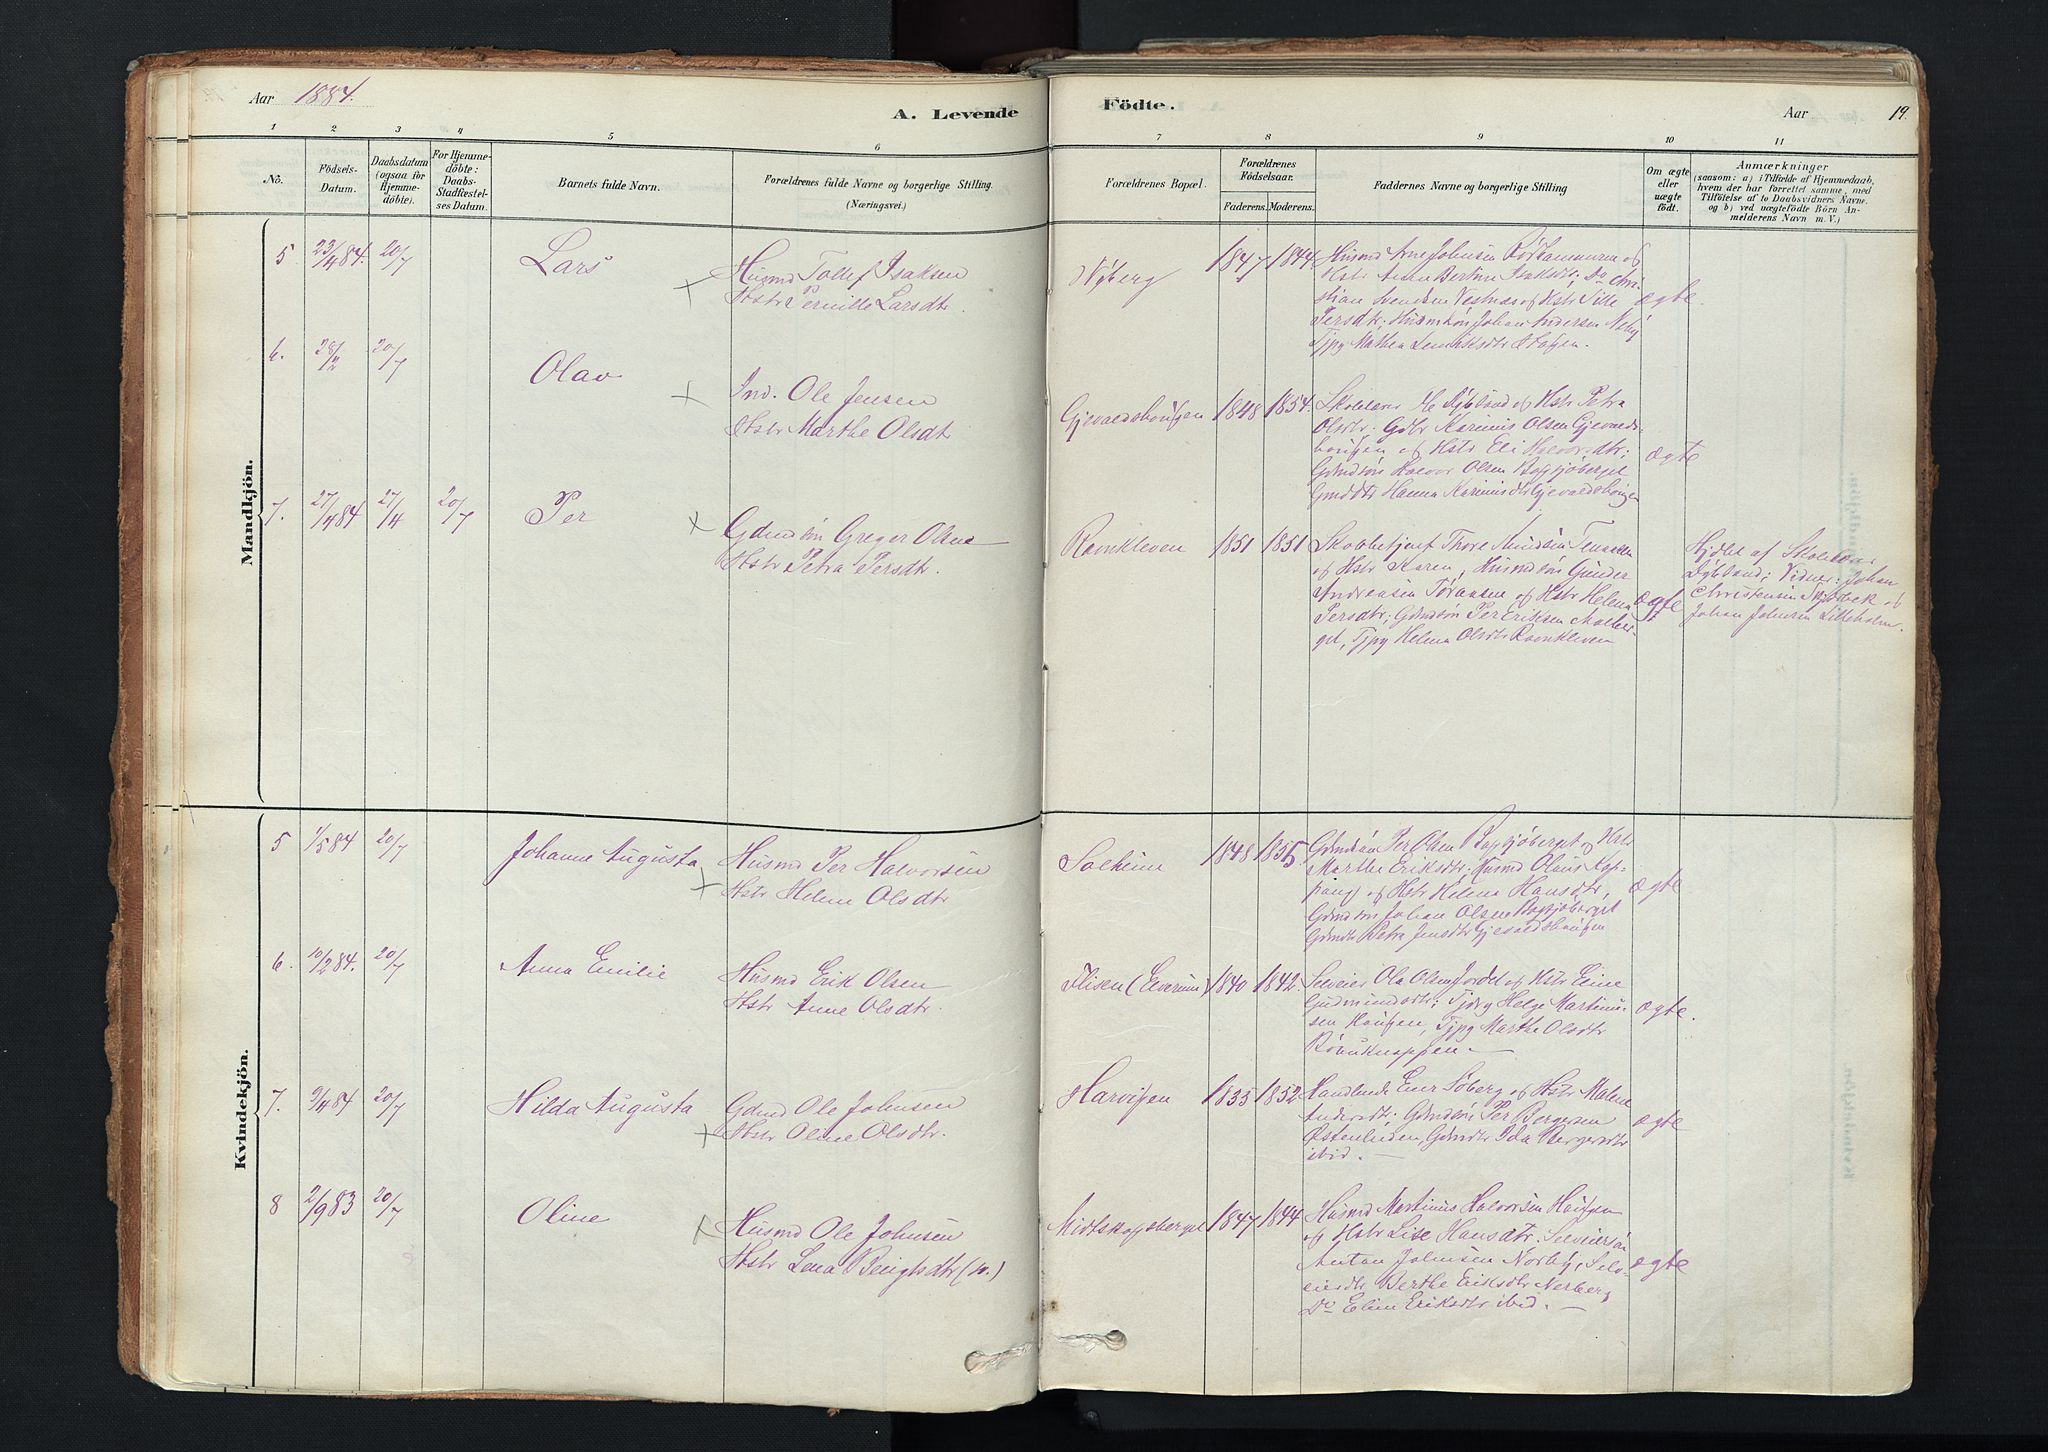 Aar 1884.
A. Levende
Födte.
Aar
19.
1 2 3 4 5 6 7 8 9 10 11
No.
Födsels-
Datum.
Daabsdatum
(ogsaa for
Hjemme-
döbte).
For Hjemme-
döbte:
Daabs-
Stadfæstel-
ses Datum.
Barnets fulde Navn.
Forældrenes fulde Navne og borgerlige Stilling
(Næringsvei.)
Forældrenes Bopæl.
Forældrenes
Födselsaar.
Faderens.
Moderens.
Faddernes Navne og borgerlige Stilling
Om ægte
eller
uægte
födt.
Anmærkninger
(saasom: a) i Tilfælde af Hjemmedaab,
hvem der har forrettet samme, med
Tilföielse af to Daabsvidners Navne.
og b) ved uægtefödte Börn An-
melderens Navn m. V.)
Mandkjön.
5 23/4 84. 20/7
Lars
Husmd Tollef Isaksen
Hstr Pernille Larsdtr.
Nyberg
1847 1844
Husmd Arne Johnsen
Hstr Anna Bertine Isaksdtr; Do Chri-
stian Svendsen Vestnæs og Hstr Sille
Persdtr; Husmdsøn Johan Andersen
Tjpg Mathea
ægte.
6. 28/2 20/7
Olav
Ind. Ole Jensen
Hstr Marthe Olsdtr
Gjevaldshaugen
1848 1854.
Skolelærer Ole Dybland og Hstr Petra
Olsdtr. Gdbr Karinius Olsen Gjevalds-
haugen og Hstr Eli Halvorsdtr;
Gdmdsøn Halvor Olsen Bagsjøberget
Gmddtr Hanna Kariniusdtr Gjevaldshaugen
ægte
7. 27/4 84 27/4 20/7
Per
Gdmdsøn Greger Olsen
Hstr Petra Persdtr.
Ravnkleven
1851 1851
Thore
og Hstr Karen, Husmdsøn Gunder
Andreasen og Hstr Helena
Persdtr; Gdmdsøn Per Eriksen
get, Tjpg Helena Olsdtr Ravnkleven
ægte
Hjdbt af Skolelærer
Dybland; Vidner: Johan
Christensen og
Johan Johnsen Lilleholm.
Kvindekjön.
5 1/5 84 20/7
Johanne Augusta
Husmd Per Halvorsen
Hstr Helene Olsdtr
Solheim
1848 1855.
Gdmdsøn Per Olsen Bagsjøberget og Hstr
Marthe Eriksdtr. Husmd Olaus Kop-
pang og Hstr Helena Hansdtr,
Gdmdsøn Johan Olsen Bagsjøberget
Gdmdtr Petra Jensdtr Gjevaldshaugen
ægte
6. 10/2 84. 20/7
Anna Emilie
Husmd Erik Olsen
Hstr Anne Olsdtr.
Flisen (Elverum)
1840 1842.
Selveier Ola Olsen Jordet og Hstr Eline
Gudmundsdtr; Tjdrg Helge Martinus-
sen Haugen, Tjpg Marthe Olsdtr
ægte.
7. 9/4 84 20/7
Hilda Augusta
Gdmd Ole Johnsen
Hstr Oline Olsdtr.
Harvigen
1835 1852
Handlende Ener Søberg og Hstr Malene
Andersdtr; Gdmdsøn Per Bergersen
Østenheden, Gdmdtr Ida Bergersdtr
ibid. —
ægte
8 2/9 83 20/7
Oline
Husmd Ole Johnsen
Hstr Lena Bengtsdtr (n.)
Midtskogsberget
1847 1844
Husmd Martinus Halvorsen Haugen
og Hstr Lise Hansdtr. Selveiersøn
Anton Johnsen Norby, Selv-
eierdtr Berthe Eriksdtr Norberg
Do Eline Eriksdtr ibid. —
ægte